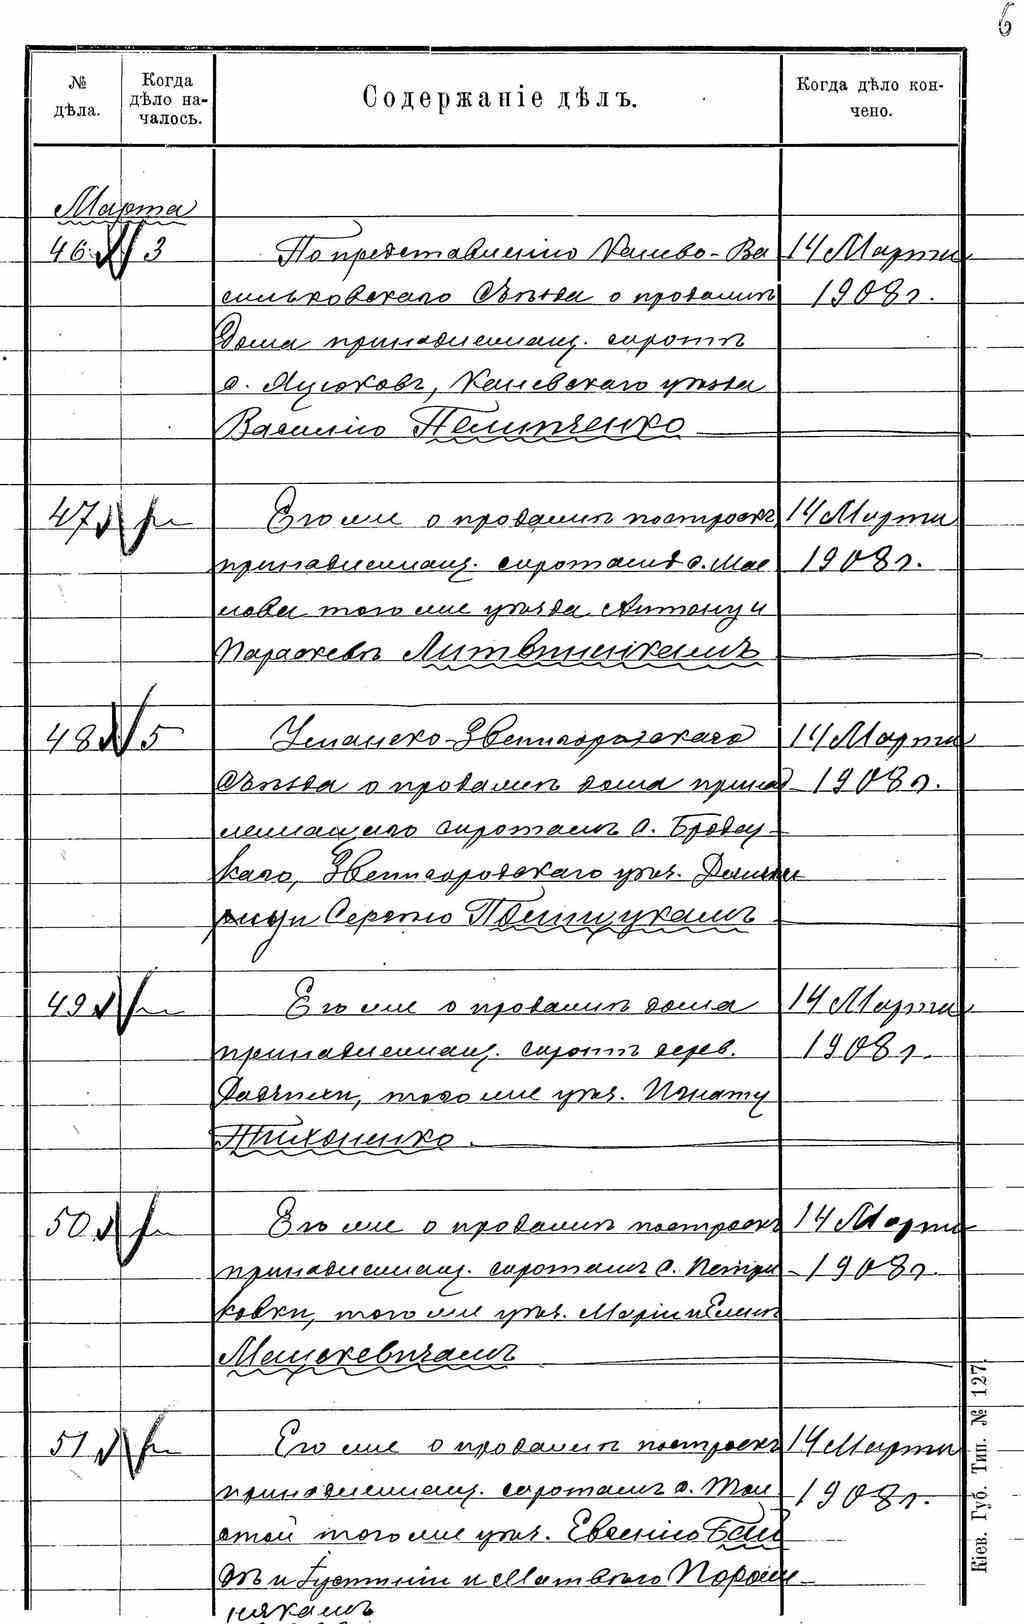 6
№ дѣла.
Когда дѣло началось.
Содержаніе дѣлъ.
Когда дѣло кончено.
Марта
46 3 По представленію Канево-Ва 14 Марта
сильковскаго Съѣзда о продажѣ 1908 г.
дома принадлежащ. сиротѣ
с. Яцюковъ, Каневскаго уѣзда
Василію Пелипченко
47 Его же о продажѣ построекъ 14 Марта
принадлежащ. сиротамъ с. Мас 1908 г.
ловы того же уѣзда Антону и
Параскевѣ Литвиненкамъ
48 5 Уманско-Звенигородскаго 14 Марта
Съѣзда о продажѣ дома принад 1908 г.
лежащаго сиротамъ с. Бродец-
каго, Звенигородскаго уѣз.
и Сергѣю
49 Его же о продажѣ дома 14 Марта
принадлежащ. сиротѣ дерев. 1908 г.
того же уѣз. Игнату
Тихоненко
50 Его же о продажѣ построекъ 14 Марта
принадлежащ. сиротамъ с. Петри- 1908 г.
ковки, того же уѣз. Маріи и Еленѣ
Мацкевичамъ
51 Его же о продажѣ построекъ 14 Марта
принадлежащ. сиротамъ с. Тол 1908 г.
стой того же уѣз. Евгенію
и Густиніи и Матвѣю
някамъ
Кіев. Губ. Тип. № 127.